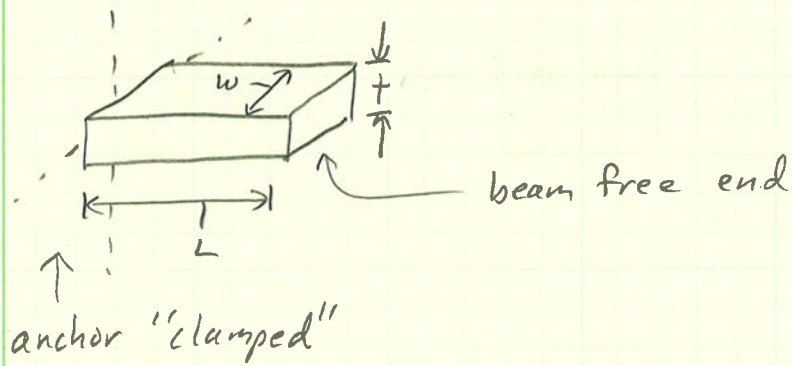 w
t
beam free end
L
anchor "clamped"